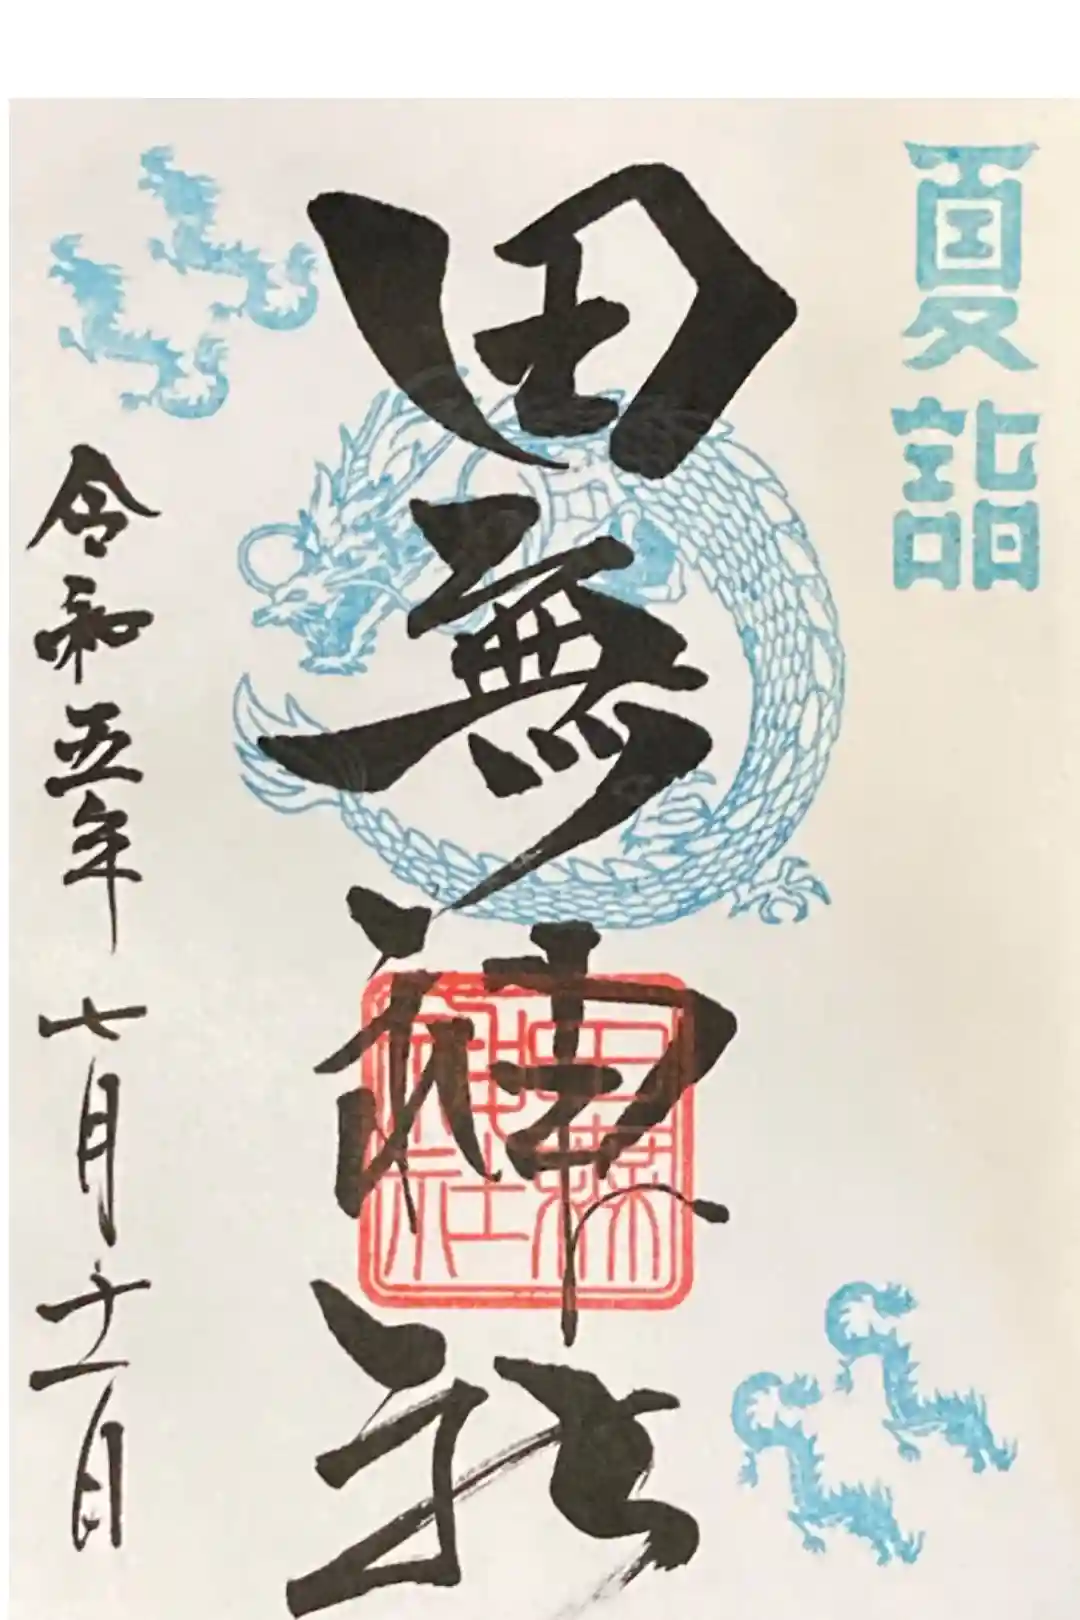 夏詣
田無神社
田無神社
令和五年 七月十一日